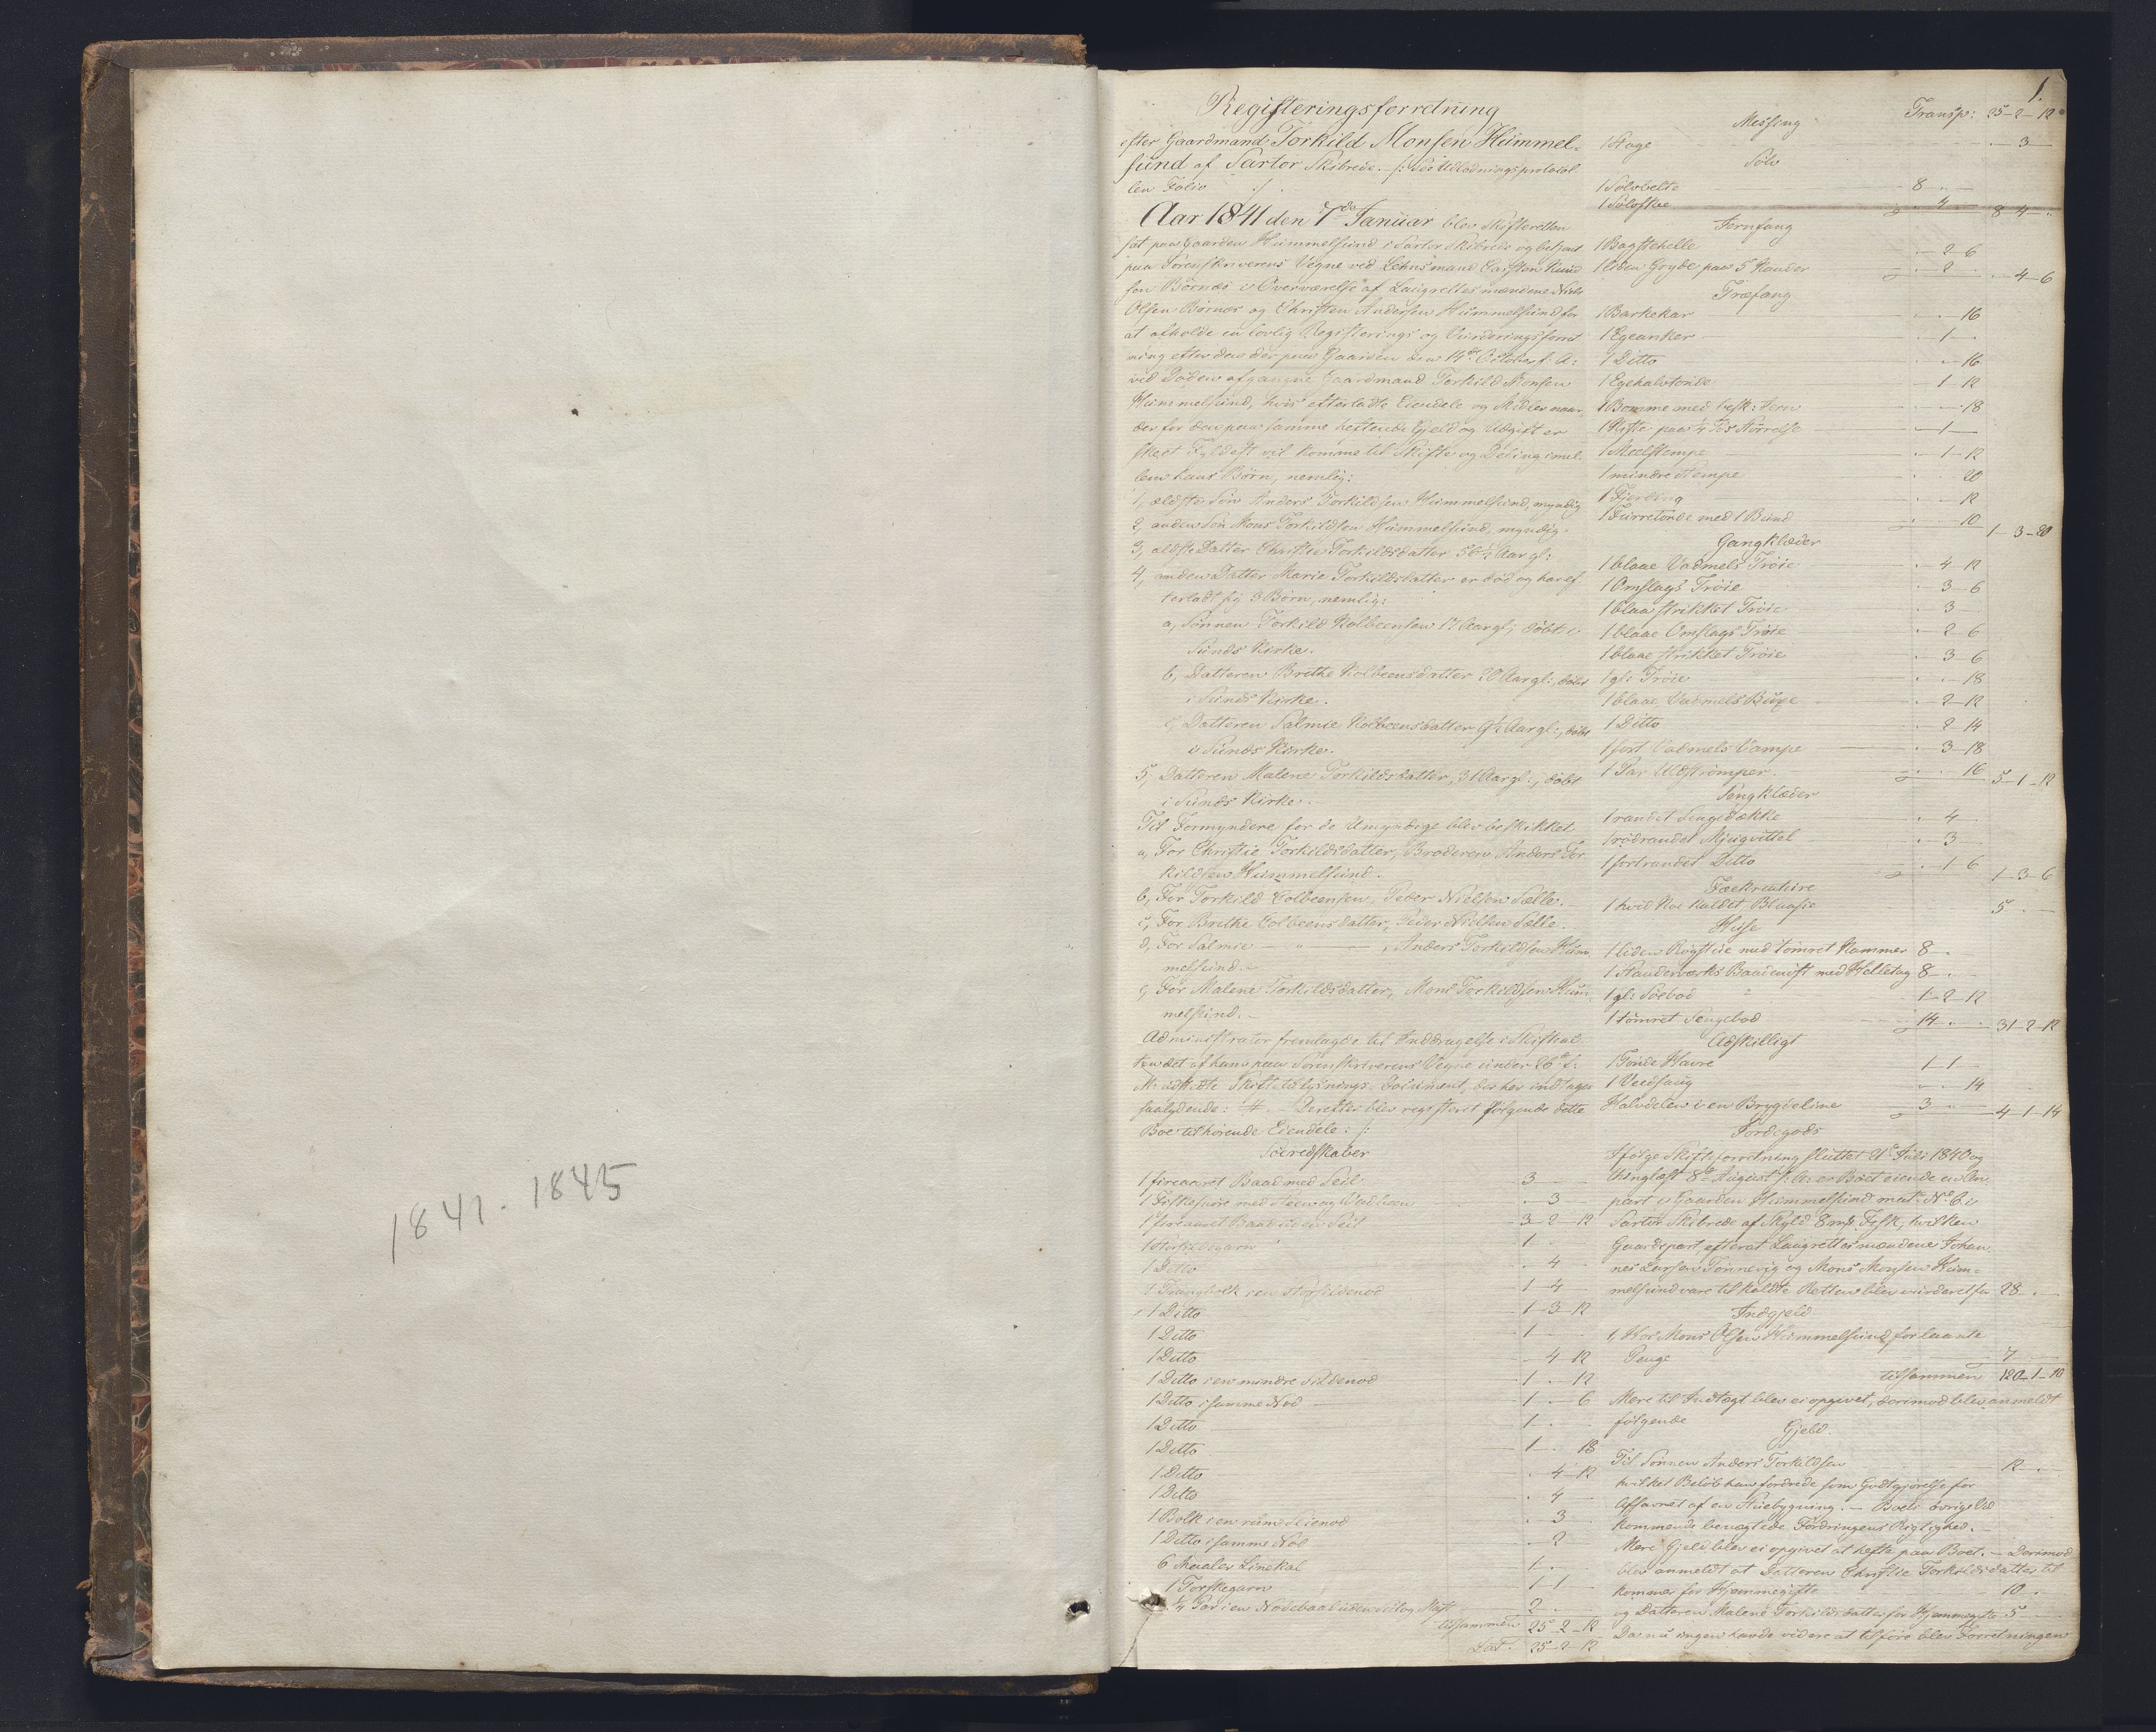 1841-1845
1.
Registeringsforretning
efter Gaardmand Torkild Monsen Hummel-
sund af Sartor Skibrede. /: See Udlodningsprotokol
len Folio :/.
Aar 1841 den 7de Januar blev Skifteretten
sat paa Gaarden Hummelsund i Sartor Skibrede og betjent
paa Sorenskriverens Vegne ved Lehnsmand Carsten Knud
sen Børnæs i Overværelse af Laugrettesmændene Niels
Olsen Børnæs og Christen Andersen Hummelsund for
at afholde en lovlig Registerings og Vurderingsforret
ning efter den der paa Gaarden den 14de October f. A:
ved Døden afgangne Gaardmand Torkild Monsen
Hummelsund, hvis efterladte Eiendele og Midler naar
der for den paa samme heftende Gjeld og Udgift er
skeet Fyldest vil komme til Skifte og Deling imel
lem hans Børn, nemlig:
1, ældste Søn Anders Torkildsen Hummelsund, myndig
2, anden Søn Mons Torkildsen Hummelsund, myndig.
3, ældste Datter Christie Torkildsdatter 56½ Aar gl:
4, anden Datter Marie Torkildsdatter er død og har ef
terladt sig 3 Børn, nemlig:
a, Sønnen Torkild Kolbeensen 17 Aar gl; døbt i
Sunds Kirke.
b, Datteren Brithe Kolbeensdatter 20 Aar gl:, døbt
i Sunds Kirke.
c, Datteren Salmie Kolbeensdatter 9½ Aar gl:, døbt
i Sunds Kirke.
5, Datteren Malene Torkildsdatter, 31 Aar gl:, døbt
i Sunds Kirke.
Til Formyndere for de Umyndige blev beskikket
a, For Christie Torkildsdatter, Broderen Anders Tor
kildsen Hummelsund.
b, For Torkild Colbeensen, Peder Nielsen Sælle.
c, For Brithe Colbeensdatter, Peder Nielsen Sælle.
d, For Salmie — " — , Anders Torkildsen Hum
melsund.
e, For Malene Torkildsdatter, Mons Torkildsen Hum
melsund.
Administrator fremlagde til Inddragelse i Skifteak
ten det af ham paa Sorenskriverens Vegne under 26de f:
M: udstædte Skiftetilsynings Document, der her indtages
saalydende: #. — Derefter blev registeret følgende dette
Boe tilhørende Eiendele: /:
Søeredskaber
1 fireaaret Baad med Seil 3 —
1 Fiskesnøre med Steen og Vadbeen . 3 —
1 fireaaret Baad uden Seil 3-2-12
1 Størsildegarn 1 —
1 Ditto . 4 —
1 Trangbolk i en Storsildenod 1-4
1 Ditto 1-3-12
1 Ditto 1 —
1 Ditto . 4-12
1 Ditto i en mindre Sildenod 1-.-12
1 Ditto i samme Nod 1-.-6
1 Ditto 1 .
1 Ditto 1 . 18
1 Ditto . 4-12
1 Ditto . 4 —
1 Bolk i en rum Seienod . 3
1 Ditto i samme Nod . 2
6 Maaler Linekal 1 .
1 Torskegarn 1-1
¼ Part i en Nodebaad uden Seil og Mast 2 .
tilsammen 25-2-12
Lat. 25-2-12
Transp: 25-2-12
Messing
1 Stage . 3 —
Sølv
1 Sølvbelte 8 . —
1 Sølvskee . 4 — 8-4-"
Jernfang
1 Bagstehelle . 2-6
1 liden Gryde paa 5 Kander . 2 . 4-6
Træfang
1 Barkekar . . 16
1 Egeanker . 1 .
1 Ditto . . 16
1 Egehalvtønde 1-12
1 Bomme med besk: Jern . 18
1 Kiste paa ¼ Tds Størrelse 1 —
1 Meelstempe . 1-12
1 mindre Stempe . . 20
1 Fjerding . . 12
1 Furretønde med 1 Bund . . 10 1-3-20
Gangklæder
1 blaae Vadmels Trøie . 4-12
1 Omslags Trøie . 3-6
1 blaae strikket Trøie . 3 —
1 blaae Omslags Trøie . 2-6
1 blaae strikket Trøie . 3-6
1 gl: Trøie . . 18
1 blaae Vadmels Buxe . 2-12
1 Ditto . 2-14
1 sort Vadmels Kampe . 3-18
1 Par Uldstrømper . . 16 5-1-12
Sengklæder
1 randet Sengedække . 4 —
1 rødrandet Miugvittel . 3 —
1 sortrandet Ditto . 1-6 1-3-6
Fæekreature
1 hvid Koe kaldet Blaasie 5 . —
Huse
1 liden Røgstue med tømret Kammer 8 .
1 Standerværks Baadenøst med Helletag 8 .
1 gl: Søebod 1-2-12
1 tømret Sengebod 14 . . 31-2-12
Adskilligt
1 Tønde Havre 1-1 —
1 Veedsaug . . 14
Halvdelen i en Brygdeline 3 . 4-1-14
Jordegods
Ifølge Skifteforretning sluttet 21de Juli 1840 og
thinglæst 8de August s: A: er Boet eiende en An
part i Gaarden Hummelsund matr. No 6 i
Sartor Skibrede af Skyld 8 mk Fisk, hvilken
Gaardspart, efterat Laugrettesmændene Johan
nes Larsen Tønnevig og Mons Monsen Hum-
melsund vare tilkaldte Retten blev vurderet for 28 . —
Indgjeld
1, Hos Mons Olsen Hummelsund for laante
Penge 7 —
tilsammen 120-1-10
Mere til Indtægt blev ei opgivet, derimod blev anmeldt
følgende Gjeld.
Til Sønnen Anders Torkildsen 12 . —
hvilket Beløb han fordrede som Godtgjørelse for
Afsavnet af en Stuebygning. — Boets øvrige Ved
kommende benægtede Fordringens Rigtighed.
Mere Gjeld blev ei opgivet at hefte paa Boet. — Derimod
blev anmeldt at Datteren Christie Torkildsdatter til
kommer for Hjemmegifte 10 .
og Datteren Malene Torkildsdatter for Hjemmegifte 5 —
Da nu ingen havde videre at tilføre blev Forretningen